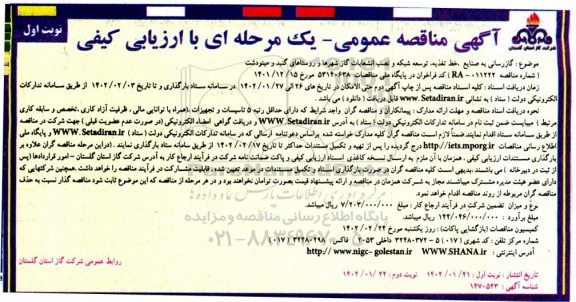 نوبت اول
آگهی مناقصه عمومی- یک مرحله ای با ارزیابی کیفی
شرکت گاز استان گلستان
موضوع : گازرسانی به صنایع ، خط تغذیه، توسعه شبکه و نصب انشعابات گاز شهرها و روستاهای گنبد و مینودشت
( شماره مناقصه ۰۱۱۲۲۲ - RA ) کد فراخوان در پایگاه ملی مناقصات : ۵۳۱۴۰۶۳۸ مورخ ۱۴۰۱/۱۲/۱۵
زمان دریافت اسناد : کلیه اسناد مناقصه پس از چاپ آگهی دوم حتی الامکان در تاریخ های ۲۶ الی ۱۴۰۲/۰۱/۲۷ در سامانه ستاد بارگذاری و تا تاریخ ۱۴۰۲/۰۲/۰۳ از طریق سامانه تدارکات
الکترونیکی دولت ( ستاد ) به نشانی www.Setadiran.ir قابل دریافت ( دانلود ) می باشد .
نحوه دریافت اسناد مناقصه و مهلت ارائه مدارک : پیمانکاران و مناقصه گران واجد شرایط که دارای حداقل رتبه ۵ تاسیسات و تجهیزات ،(همراه با توانایی مالی ، ظرفیت آزاد کاری ،تخصص و سابقه کاری
مرتبط ) میبایست ضمن ثبت نام در سامانه تدارکات الکترونیکی دولت ( ستاد ) به آدرس WWW.Setadiran.ir و دریافت گواهی امضاء الکترونیکی (در صورت عدم عضویت قبلی ) جهت شرکت در مناقصه
از طریق سامانه ستاد اقدام نمایند.ضمناً لازم است مناقصه گران کلیه مدارک خواسته شده براساس دفترنامه ارسالی که در سامانه تدارکات الکترونیکی دولت ( ستاد ) WWW.Setadiran.ir و پایگاه ملی
اطلاع رسانی مناقصات http://iets.mporg.ir درج گردیده را پس از تهیه و تکمیل مستندات حداکثر تا تاریخ ۱۴۰۲/۰۲/۱۷ از طریق سامانه ستاد بارگذاری نمایند . (دراین مرحله مناقصه گران علاوه بر
بارگذاری مستندات ارزیابی کیفی ، همزمان با آن ملزم به ارسال نسخه کاغذی اسناد ارزیابی کیفی و پاکت ضمانت نامه شرکت در فرآیند ارجاع کار به آدرس شرکت گاز استان گلستان – امور قراردادها (پس
از ثبت در دبیرخانه ) می باشند
دارای عضو هیئت مدیره مشترک میباشند، مجاز به شرکت همزمان در مناقصه و ارائه پیشنهاد قیمت بصورت توامان نخواهند بود و در هر مرحله از مناقصه که این موضوع ثابت شود مناقصه گذار نسبت به حذف
مناقصه گران مربوطه از روند مناقصه اقدام خواهد نمود.
نوع و میزان تضمین شرکت در فرآیند ارجاع کار : مبلغ ۷/۲۰۳/۰۰۰/۰۰۰ ریال میباشد
مبلغ برآورد : ۱۴۴/۰۴۶/۰۰۰/۰۰۰ ریال میباشد.
کمیسیون مناقصات (بازگشایی پاکات) : روز یکشنبه مورخ ۱۴۰۲/۰۲/۲۴
شماره مرکز تلفن : کد شهری ( ۰۱۷) ۵ - ۳۲۴۸۰۳۷۲ داخلی ۱۰۵۳ فاکس: ۳۲۴۸۰۲۹۸ ( ۰۱۷)
آدرس اینترنتی : WWW.SHANA.ir http:// www.nigc- golestan.ir
پایگاه اطلاع رسانی مناقصه و مزایده
۰۲۱-۸۸۳۴۹۶۷۰-۵
روابط عمومی شرکت گاز استان گلستان
تاریخ انتشار : نوبت اول : ۱۴۰۲/۰۱/۲۱ نوبت دوم : ۱۴۰۲/۰۱/۲۲
شناسه آگهی : ۱۴۷۰۵۲۳